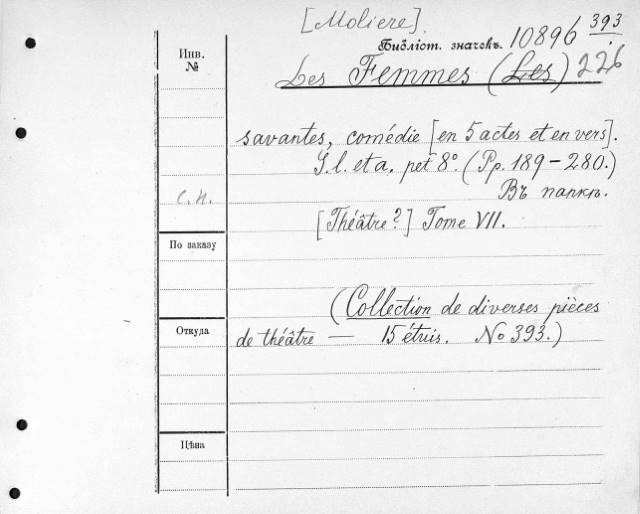 [Moliere].
393
Библіот. значекъ. 10896
Инв. №
Les Femmes (Les) 226
savantes, comédie [en 5 actes et en vers].
S. l. et a. pet 8°. (Pp. 189-280.)
Въ папкѣ.
с.н.
[Théâtre?] Tome VII.
По заказу
(Collection de diverses pièces
Откуда
de théâtre — 15 étuis. No 393.)
Цѣна